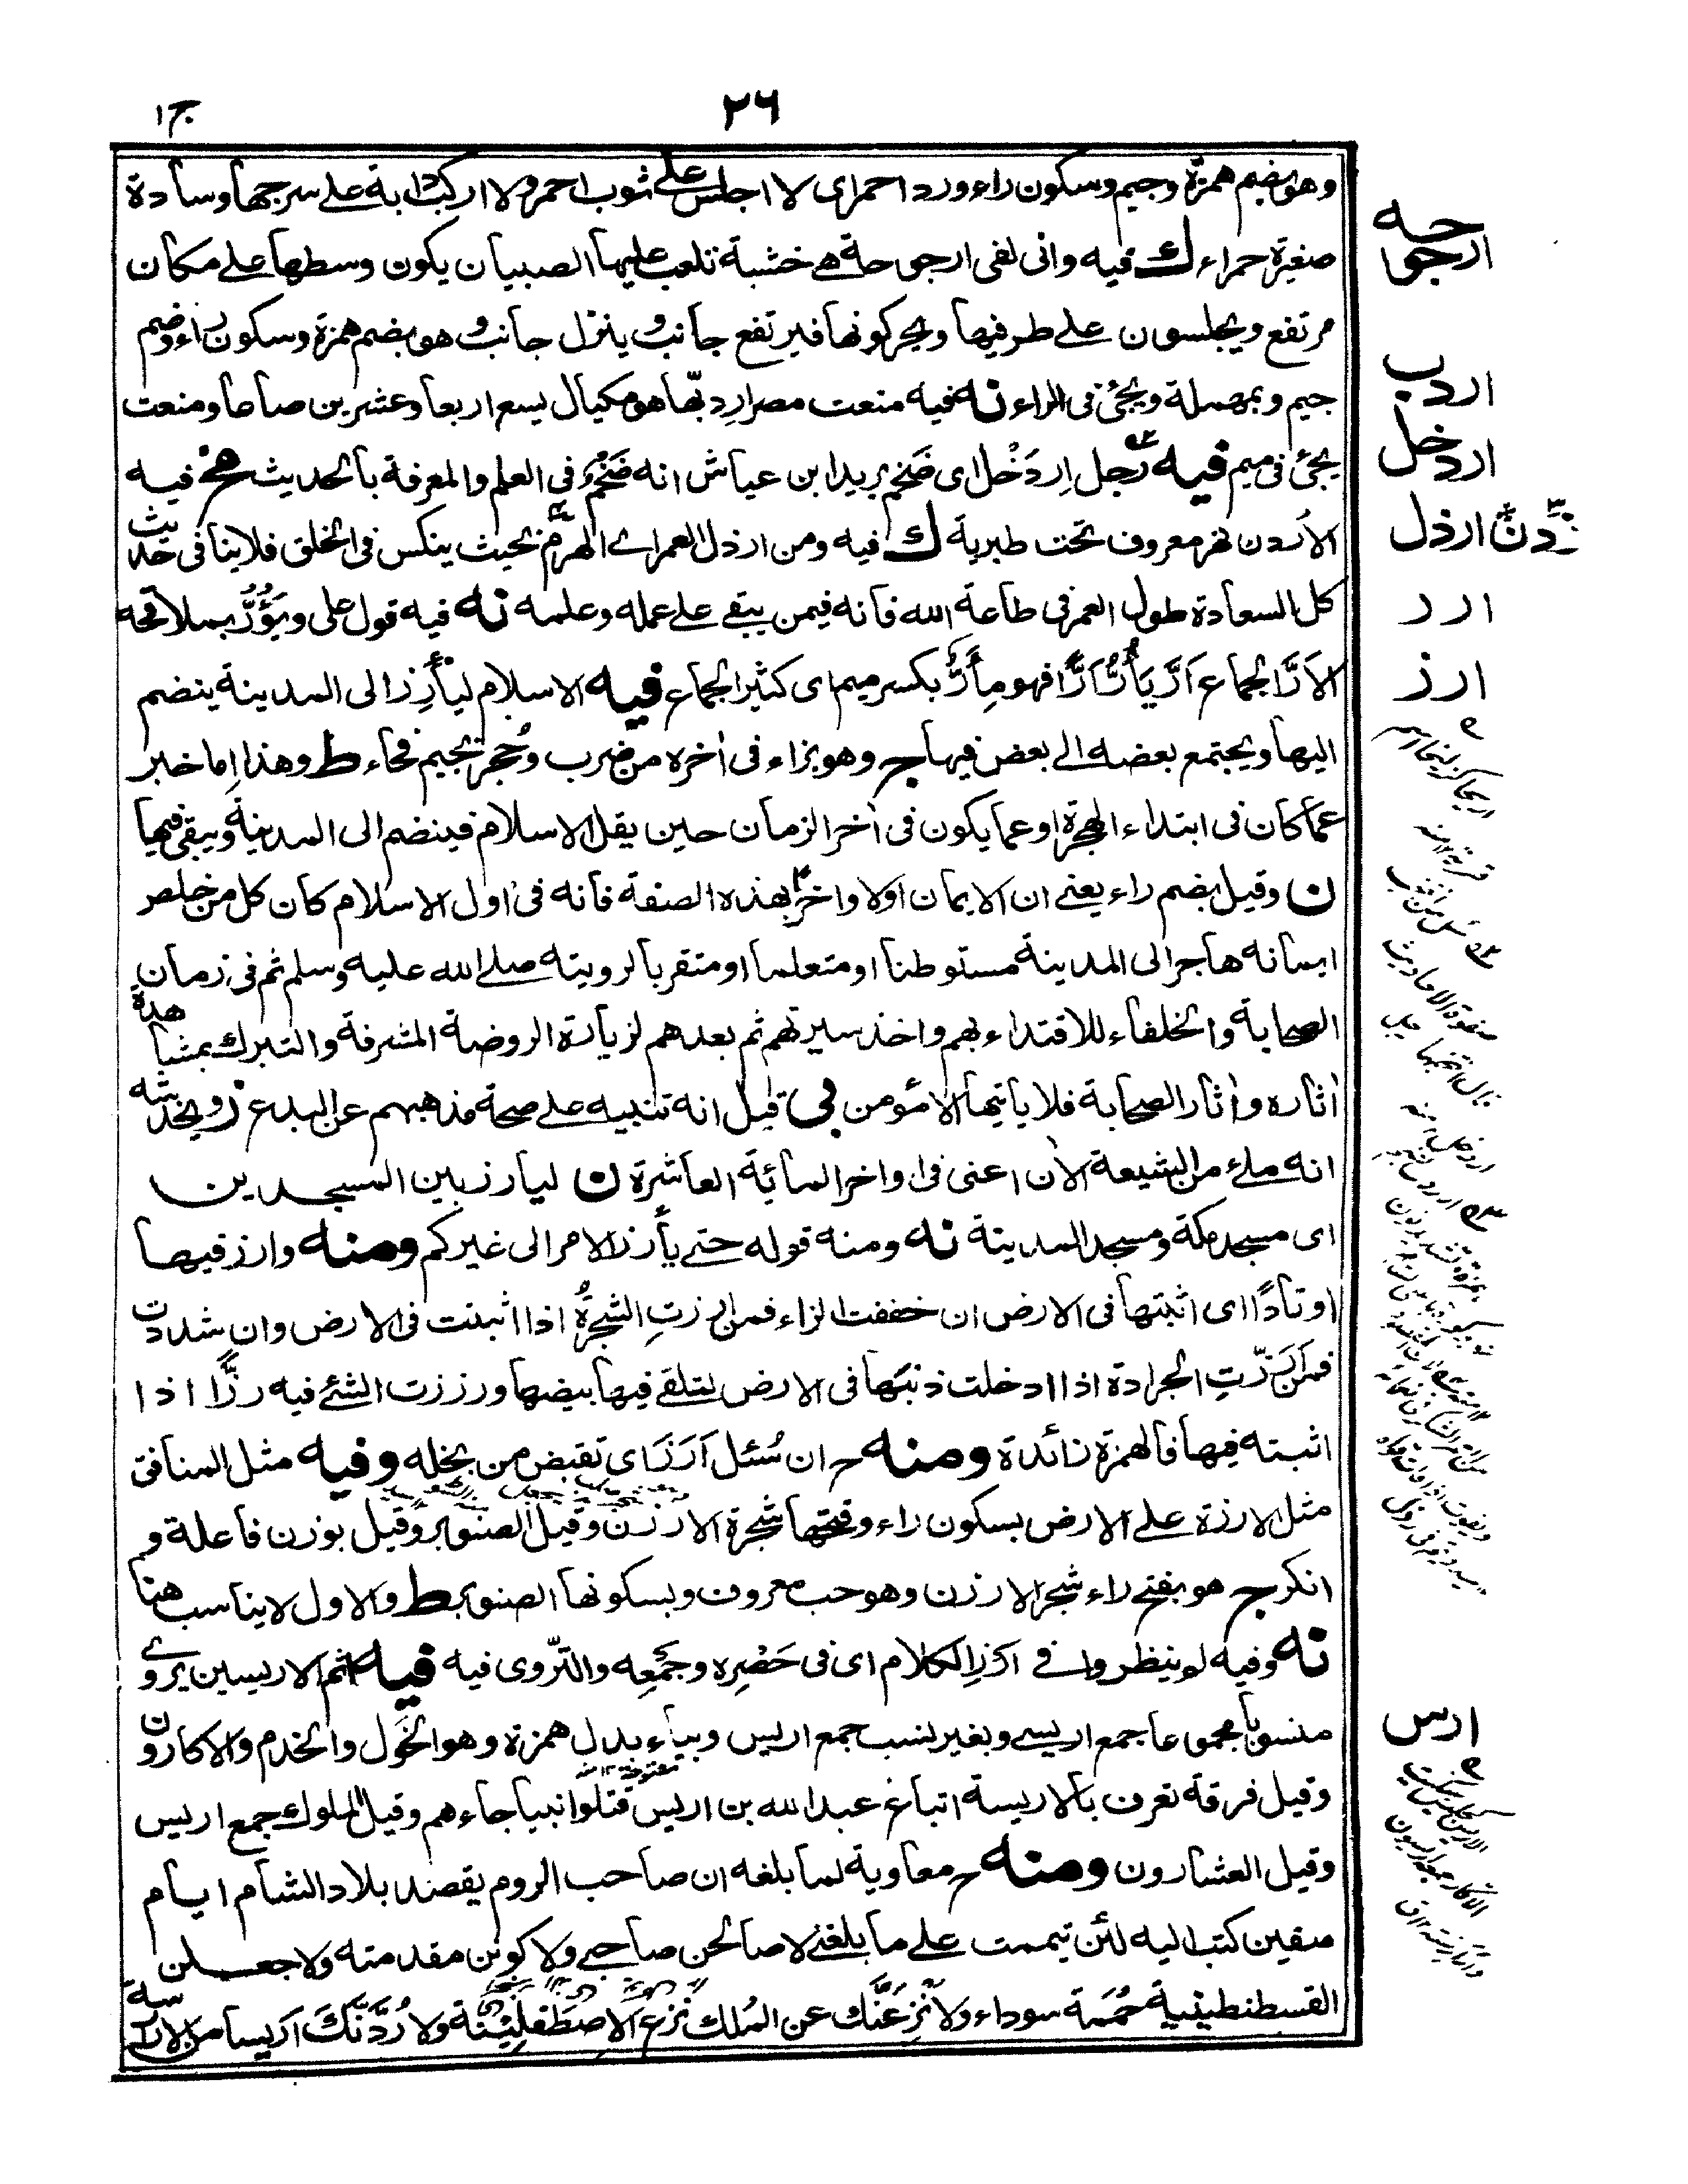 ٢٦
ج١
وهو بضم همزة وجيم وسكون راء وورد احمر اى لا اجلس على ثوب احمر ولا اركب دابة على سرجها وسادة
صغيرة حمراء ك فيه وانى لفى ارجوحة هى خشبة تلعب عليها الصبيان يكون وسطها على مكان
مرتفع ويجلسون على طرفيها ويحركونها فيرتفع جانب وينزل جانب وهو بضم همزة وسكون راء وضم
جيم وبمهملة ويجئ فى الراء نه فيه منعت مصر اردبّها هو مكيال يسع اربعا وعشرين صاعا ومنعت
يجئ فى ميم فيه رجل اِردَخْل اى ضَخم يريد ابن عياش انه ضَخْم فى العلم والمعرفة بالحديث فيه
الاُردن نهر معروف تحت طبرية ك فيه ومن ارذل العمر اے الهرم بحيث ينكس فى الخلق فلا ينافى حديث
كل السعادة طول العمر فى طاعة الله فانه فيمن يبقى على عمله وعلمه نه فيه قول على ويَؤُرُّ بملاقحه
الاَرّ الجماع اَرَّ يَأُرُّ اَرًّا فهو مِأَرٌّ بكسر ميم اى كثير الجماع فيه الاسلام ليأرِز الى المدينة ينضم
اليها ويجتمع بعضه الى بعض فيها ج وهو بزاء فى أخره من ضرب وحجر بجيم فحاء ط وهذا اما خبر
عما كان فى ابتداء الهجرة او عما يكون فى أخر الزمان حين يقل الاسلام فينضم الى المدينة ويبقى فيها
ن وقيل بضم راء يعنى ان الايمان اولا واخرا بهذه الصفة فانه فى اول الاسلام كان كل من خلص
ايمانه هاجر الى المدينة مستوطنا او متعلما او متقربا لرويته صلے الله عليه وسلم ثم فى زمان
الصحابة والخلفاء للاقتداء بهم واخذ سيرتهم ثم بعدهم لزيارة الروضة المشرفة والتبرك بمشاهدة
أثاره وأثار الصحابة فلا يأتيها الا مؤمن بى قيل انه تنبيه على صحة مذهبهم عن البدع ز ويخدشه
انه ملئ من الشيعة الأن اعنى فى اواخر المائة العاشرة ن ليارز بين المسجدين
اى مسجد مكة ومسجد المدينة نه ومنه قوله حتے يأرز الامر الى غيركم ومنه وارز فيها
اوتادًا اى اثبتها فى الارض ان خففت الزاء فمن ارزتِ الشجرةُ اذا اثبتت فى الارض وان شددت
فمن اَرَزّتِ الجرادة اذا ادخلت ذنبَها فى الارض لتلقے فيها بيضها ورززت الشئ فيه رزًّا اذا
اثبته فيها فالهمزة زائدة ومنه ح ان سُئل اَرَزَ اى تقبض من بخله وفيه مثل المنافق
مثل الارزة على الارض بسكون راء وفتحها شجرة الارزن وقيل الصنوبر وقيل بوزن فاعلة و
انكر ج هو بفتح راء شجر الارزن وهو حب معروف وبسكونها الصنوبر ط والاول لا يناسب هنا
نه وفيه لو ينظروا فے ارز الكلام اى فى حَصْرِه وجَمْعِه والتّروى فيه فيه اثم الاريسين يروے
منسوبا مجموعا جمع اريسى وبغير نسب جمع اريس وبياء بدل همزة وهو الخَوَل والخدم والاكارون
وقيل فرقة تعرف بالاريسة اتباع عبد الله بن اريس قتلوا نبيا جاءهم وقيل الملوك جمع اريس
وقيل العشارون ومنه ح معاوية لما بلغه ان صاحب الروم يقصد بلاد الشام ايام
صفين كتب اليه لئن تيممت على ما بلغنى لاصالحن صاحبى ولاكونن مقدمته ولاجعلن
القسطنطينية حُمَمة سوداء ولانزعنَّك عن المُلك نزع الاصطفلِيْنَة ولاردَّنَّكَ اريسا من الارارسة
ارجوحه
اردب
اردخل
اردنّ ارذل
ارر
ارز
ارس